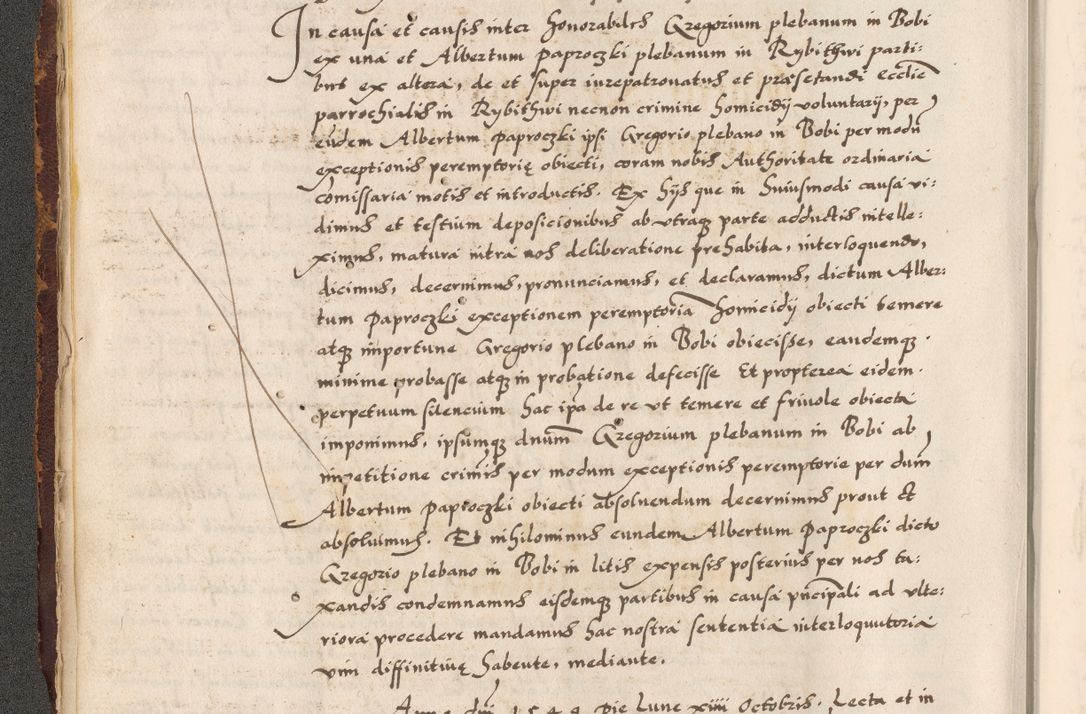 In causa et causis inter honorabiles Gregorium plebanum in Bobi
ex una et Albertum Paproczki plebanum in Rybithwi parti:
bus ex altera, de et super iurepatronatus et præsetandi Ecclie
parrochialis in Rybithwi necnon crimine homicidij voluntarij, per
eudem Albertum Paproczki ipsi Gregorio plebano in Bobi per modu
exceptionis peremptorię obiecti, coram nobis Authoritate ordinaria
comissaria motis et introductis. Ex hijs que in huiusmodi causa vi:
dimus et testium deposicionibus ab utraqз parte adductis intelle:
ximus, matura intra nos deliberatione prehabita, interloquendo,
dicimus, decernimus, pronunciamus, et declaramus, dictum Alber:
tum Paproczki exceptionem peremptoria homicidij obiecti temere
atqз importune Gregorio plebano in Bobi obiecisse, eandemqз.
minime probasse atqз in probatione defecisse Et propterea eidem.
perpetuum silencium hac ipa de re ut temere et friuole obiecta
imponimus, ipsumqз dnum Gregorium plebanum in Bobi ab
impetitione criminis per modum exceptionis peremptorie per dum
Albertum Paproczki obiecti absoluendum decernimus prout et
absoluimus. Et nihilominus eundem Albertum Paproczki dicto
Gregorio plebano in Bobi in litis expensis posterius per nos ta:
xandis condemnamus eisdemqз partibus in causa pncipali ad ulte:
riora procedere mandamus hac nostra sententia interloquutoria
vim diffinitiuę habente, mediante.
Anno dni 1549 Die Lune xiiii Octobris. Lecta et in